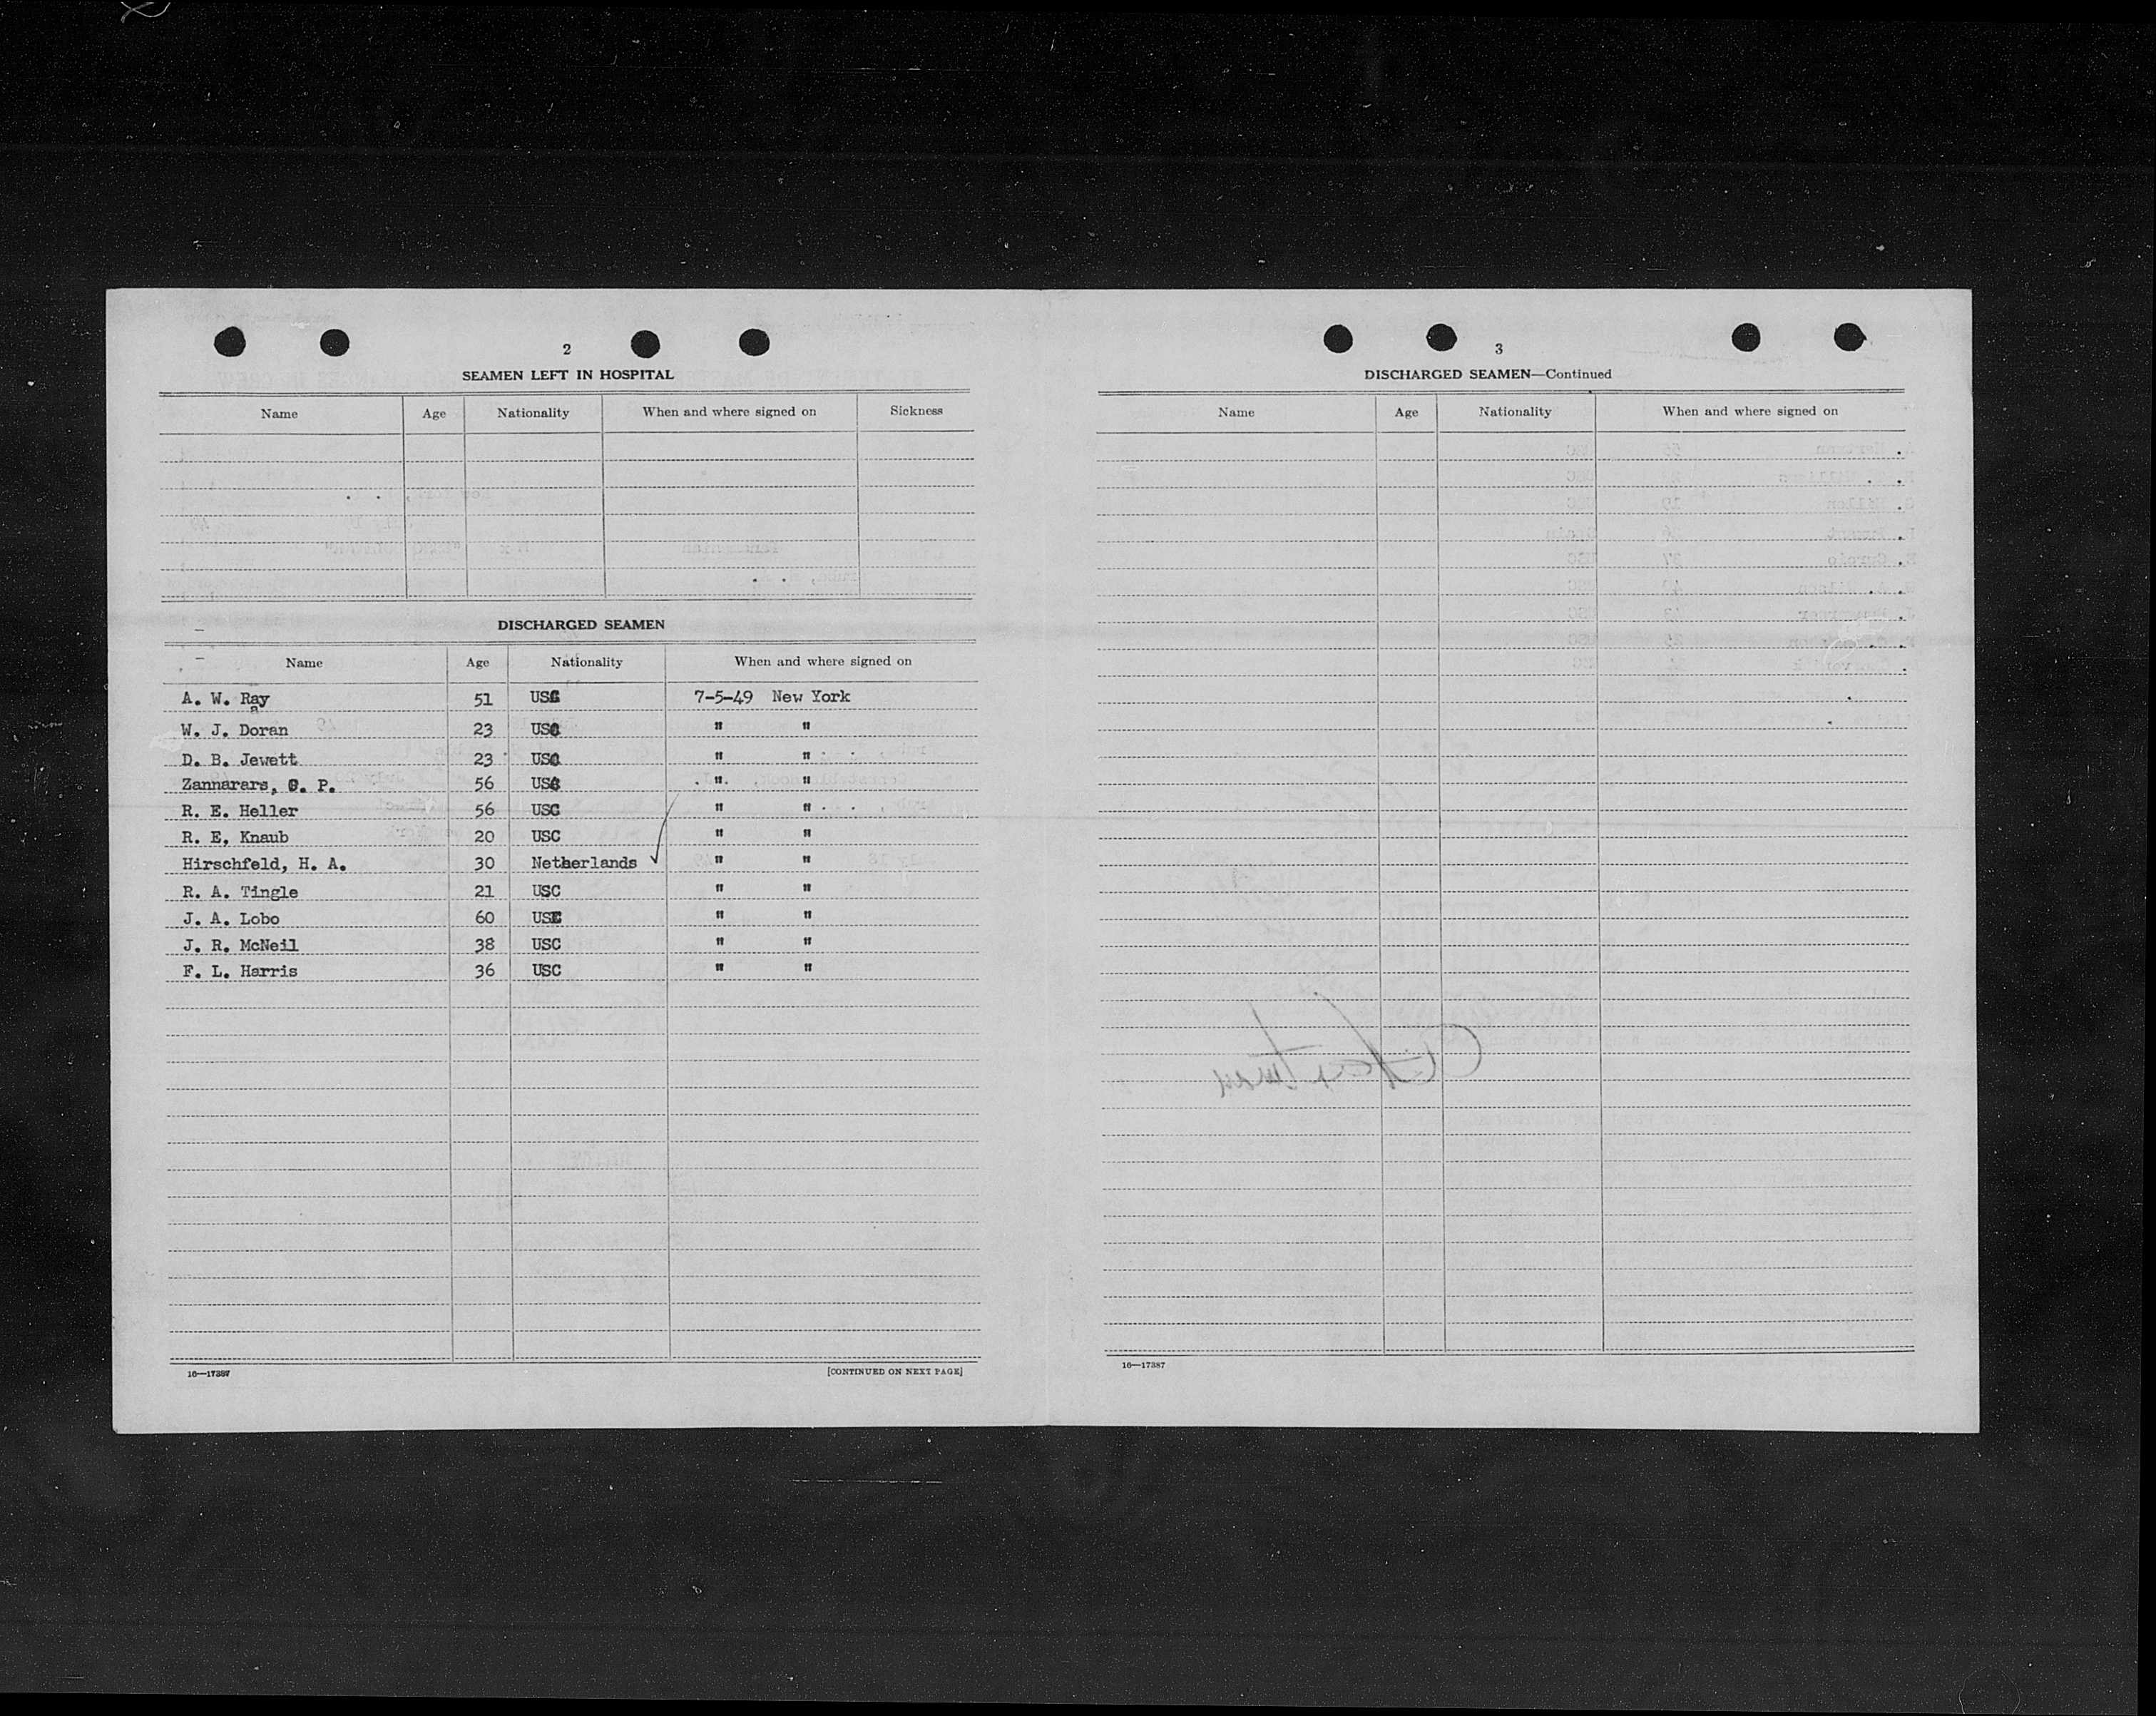 2
SEAMEN LEFT IN HOSPITAL
Name Age Nationality When and where signed on Sickness
DISCHARGED SEAMEN
Name Age Nationality When and where signed on
A. W. Ray 51 USC 7-5-49 New York
W. J. Doran 23 USC " "
D. B. Jewett 23 USC " "
Zannarars, G. P. 56 USC " "
R. E. Heller 56 USC " "
R. E, Knaub 20 USC " "
Hirschfeld, H. A. 30 Netherlands " "
R. A. Tingle 21 USC " "
J. A. Lobo 60 USC " "
J. R. McNeil 38 USC " "
F. L. Harris 36 USC " "
16—17387
[CONTINUED ON NEXT PAGE]
3
DISCHARGED SEAMEN—Continued
Name Age Nationality When and where signed on
16—17387